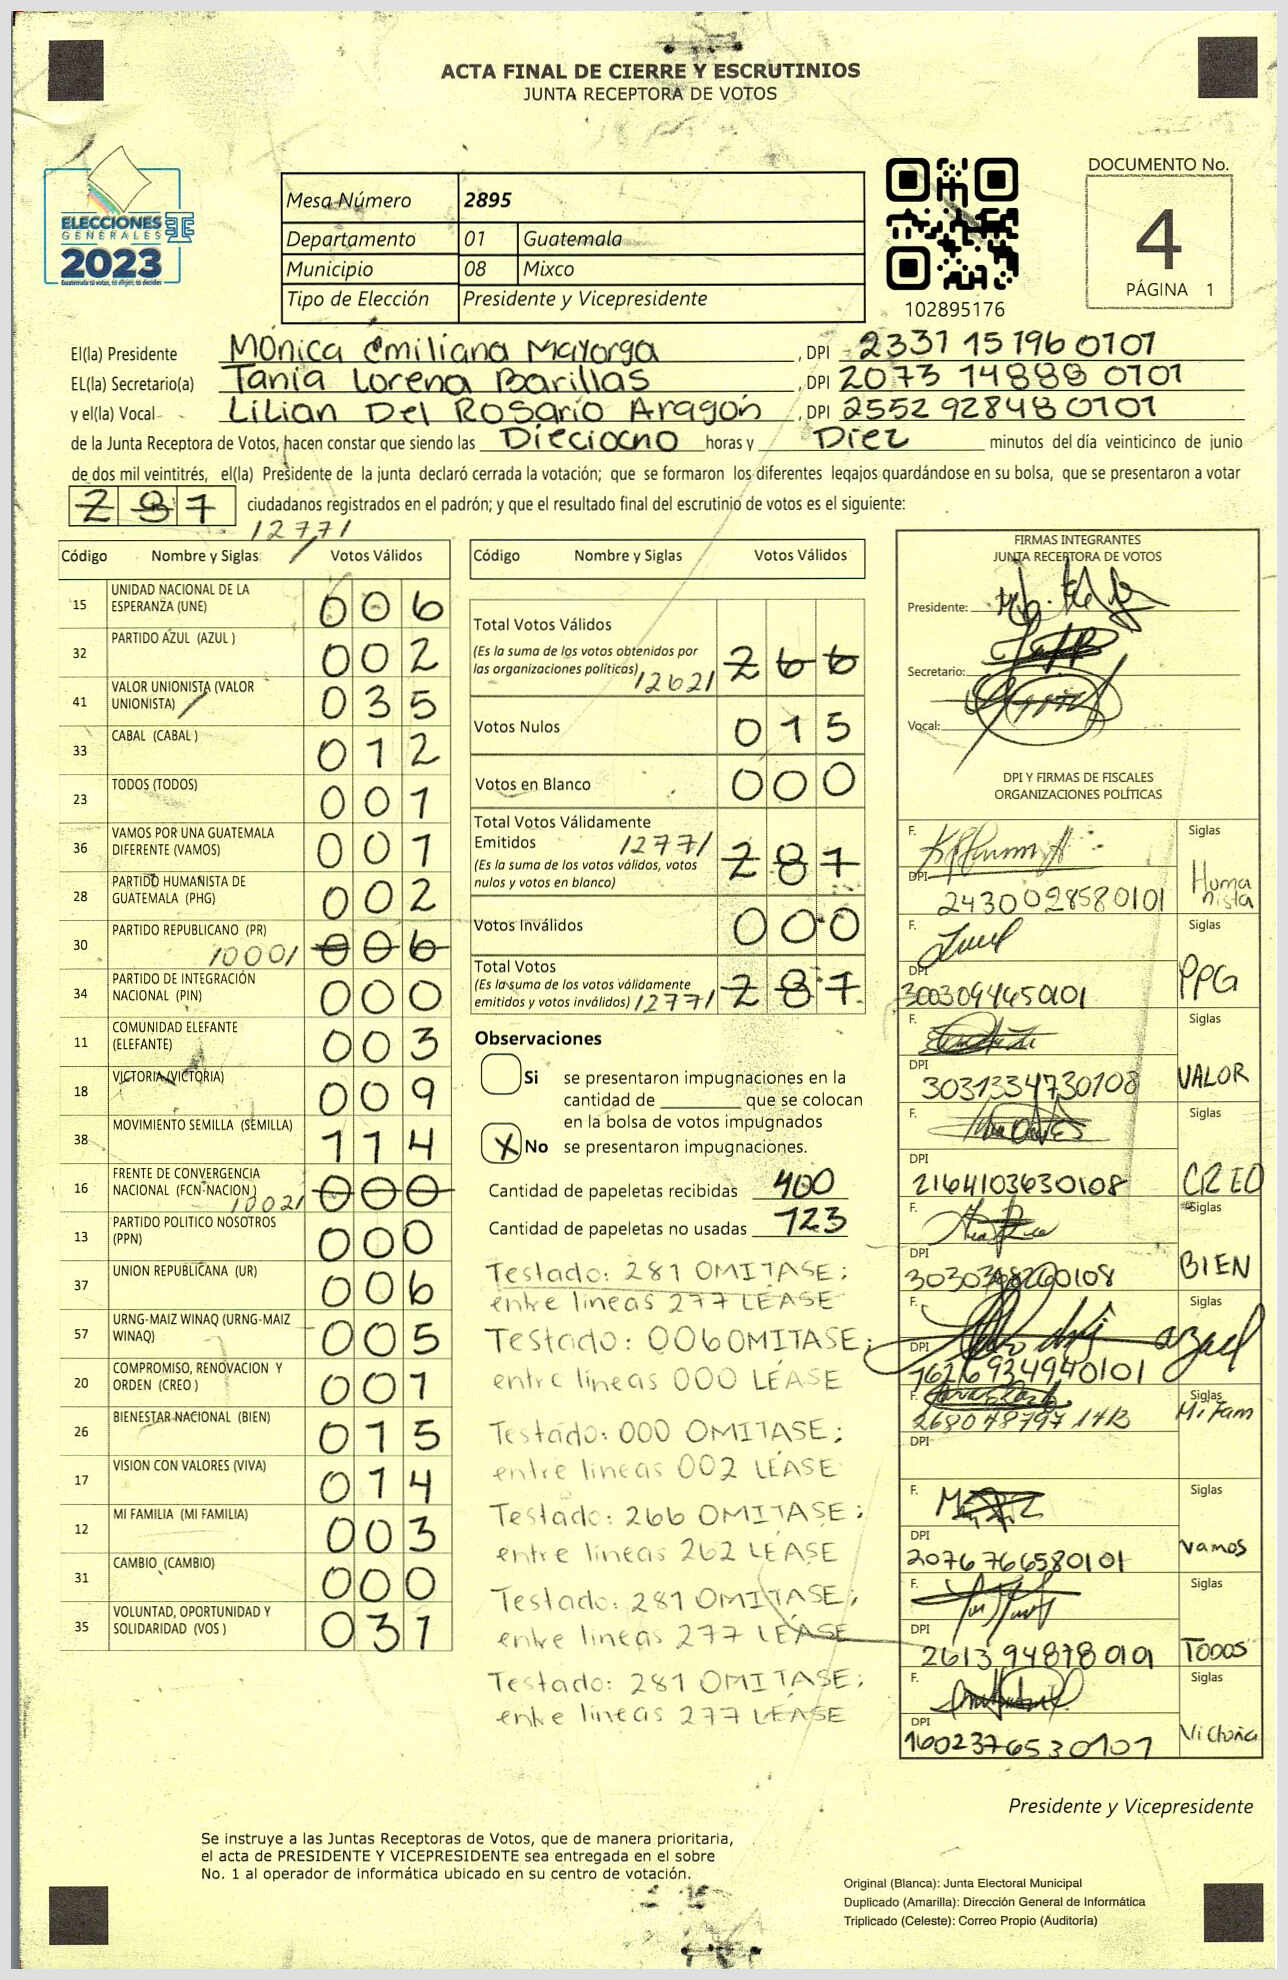 ACTA FINAL DE CIERRE Y ESCRUTINIOS
JUNTA RECEPTORA DE VOTOS
ELECCIONES
GENERALES
2023
Mesa Número 2895
Departamento 01 Guatemala
Municipio 08 Mixco
Tipo de Elección Presidente y Vicepresidente
102895176
DOCUMENTO No.
4
PÁGINA 1
El(la) Presidente Mónica Emiliana Mayorga , DPI 2331 15196 0101
EL(la) Secretario(a) Tania Lorena Barillas , DPI 2073 14888 0101
y el(la) Vocal Lilian Del Rosario Aragón , DPI 2552 92848 0101
de la Junta Receptora de Votos, hacen constar que siendo las Dieciocho horas y Diez minutos del día veinticinco de junio
de dos mil veintitrés, el(la) Presidente de la junta declaró cerrada la votación; que se formaron los diferentes legajos guardándose en su bolsa, que se presentaron a votar
281 ciudadanos registrados en el padrón; y que el resultado final del escrutinio de votos es el siguiente:
/277/
Código Nombre y Siglas Votos Válidos
15 UNIDAD NACIONAL DE LA ESPERANZA (UNE) 006
32 PARTIDO AZUL (AZUL ) 002
41 VALOR UNIONISTA (VALOR UNIONISTA) 035
33 CABAL (CABAL ) 012
23 TODOS (TODOS) 001
36 VAMOS POR UNA GUATEMALA DIFERENTE (VAMOS) 001
28 PARTIDO HUMANISTA DE GUATEMALA (PHG) 002
30 PARTIDO REPUBLICANO (PR) /000/ 006
34 PARTIDO DE INTEGRACIÓN NACIONAL (PIN) 000
11 COMUNIDAD ELEFANTE (ELEFANTE) 003
18 VICTORIA (VICTORIA) 009
38 MOVIMIENTO SEMILLA (SEMILLA) 114
16 FRENTE DE CONVERGENCIA NACIONAL (FCN-NACION) /002/ 000
13 PARTIDO POLITICO NOSOTROS (PPN) 000
37 UNION REPUBLICANA (UR) 006
57 URNG-MAIZ WINAQ (URNG-MAIZ WINAQ) 005
20 COMPROMISO, RENOVACION Y ORDEN (CREO ) 001
26 BIENESTAR NACIONAL (BIEN) 015
17 VISION CON VALORES (VIVA) 014
12 MI FAMILIA (MI FAMILIA) 003
31 CAMBIO (CAMBIO) 000
35 VOLUNTAD, OPORTUNIDAD Y SOLIDARIDAD (VOS ) 031
Código Nombre y Siglas Votos Válidos
Total Votos Válidos
(Es la suma de los votos obtenidos por
las organizaciones políticas) /262/ 266
Votos Nulos 015
Votos en Blanco 000
Total Votos Válidamente
Emitidos /277/ 281
(Es la suma de los votos válidos, votos
nulos y votos en blanco)
Votos Inválidos 000
Total Votos
(Es la suma de los votos válidamente
emitidos y votos inválidos) /277/ 281
Observaciones
Si se presentaron impugnaciones en la
cantidad de que se colocan
en la bolsa de votos impugnados
X No se presentaron impugnaciones.
Cantidad de papeletas recibidas 400
Cantidad de papeletas no usadas 123
Testado: 281 OMITASE;
entre lineas 277 LÉASE
Testado: 006 OMITASE;
entre lineas 000 LÉASE
Testado: 000 OMITASE;
entre lineas 002 LÉASE
Testado: 266 OMITASE;
entre lineas 262 LÉASE
Testado: 281 OMITASE;
entre lineas 277 LÉASE
Testado: 281 OMITASE;
entre lineas 277 LÉASE
FIRMAS INTEGRANTES
JUNTA RECEPTORA DE VOTOS
Presidente:
Secretario:
Vocal:
DPI Y FIRMAS DE FISCALES
ORGANIZACIONES POLÍTICAS
F. Siglas
DPI 2430028580101 Humanista
F. Siglas
DPI PPG
F. Siglas
DPI 3031334730108 VALOR
F. Siglas
DPI 2164103630108 CREO
F. Siglas
DPI BIEN
F. Siglas
DPI 1626934940101 azul
F. Siglas
Mi fam
DPI
F. Siglas
DPI 2076766580101 Vamos
F. Siglas
DPI 2613 94878 0101 TODOS
F. Siglas
DPI 1602376530101 Victoria
Presidente y Vicepresidente
Se instruye a las Juntas Receptoras de Votos, que de manera prioritaria,
el acta de PRESIDENTE Y VICEPRESIDENTE sea entregada en el sobre
No. 1 al operador de informática ubicado en su centro de votación.
Original (Blanca): Junta Electoral Municipal
Duplicado (Amarilla): Dirección General de Informática
Triplicado (Celeste): Correo Propio (Auditoría)